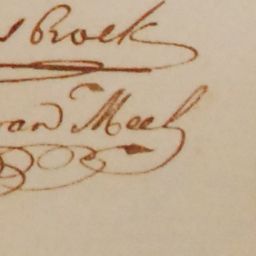 s Roek
van Meel